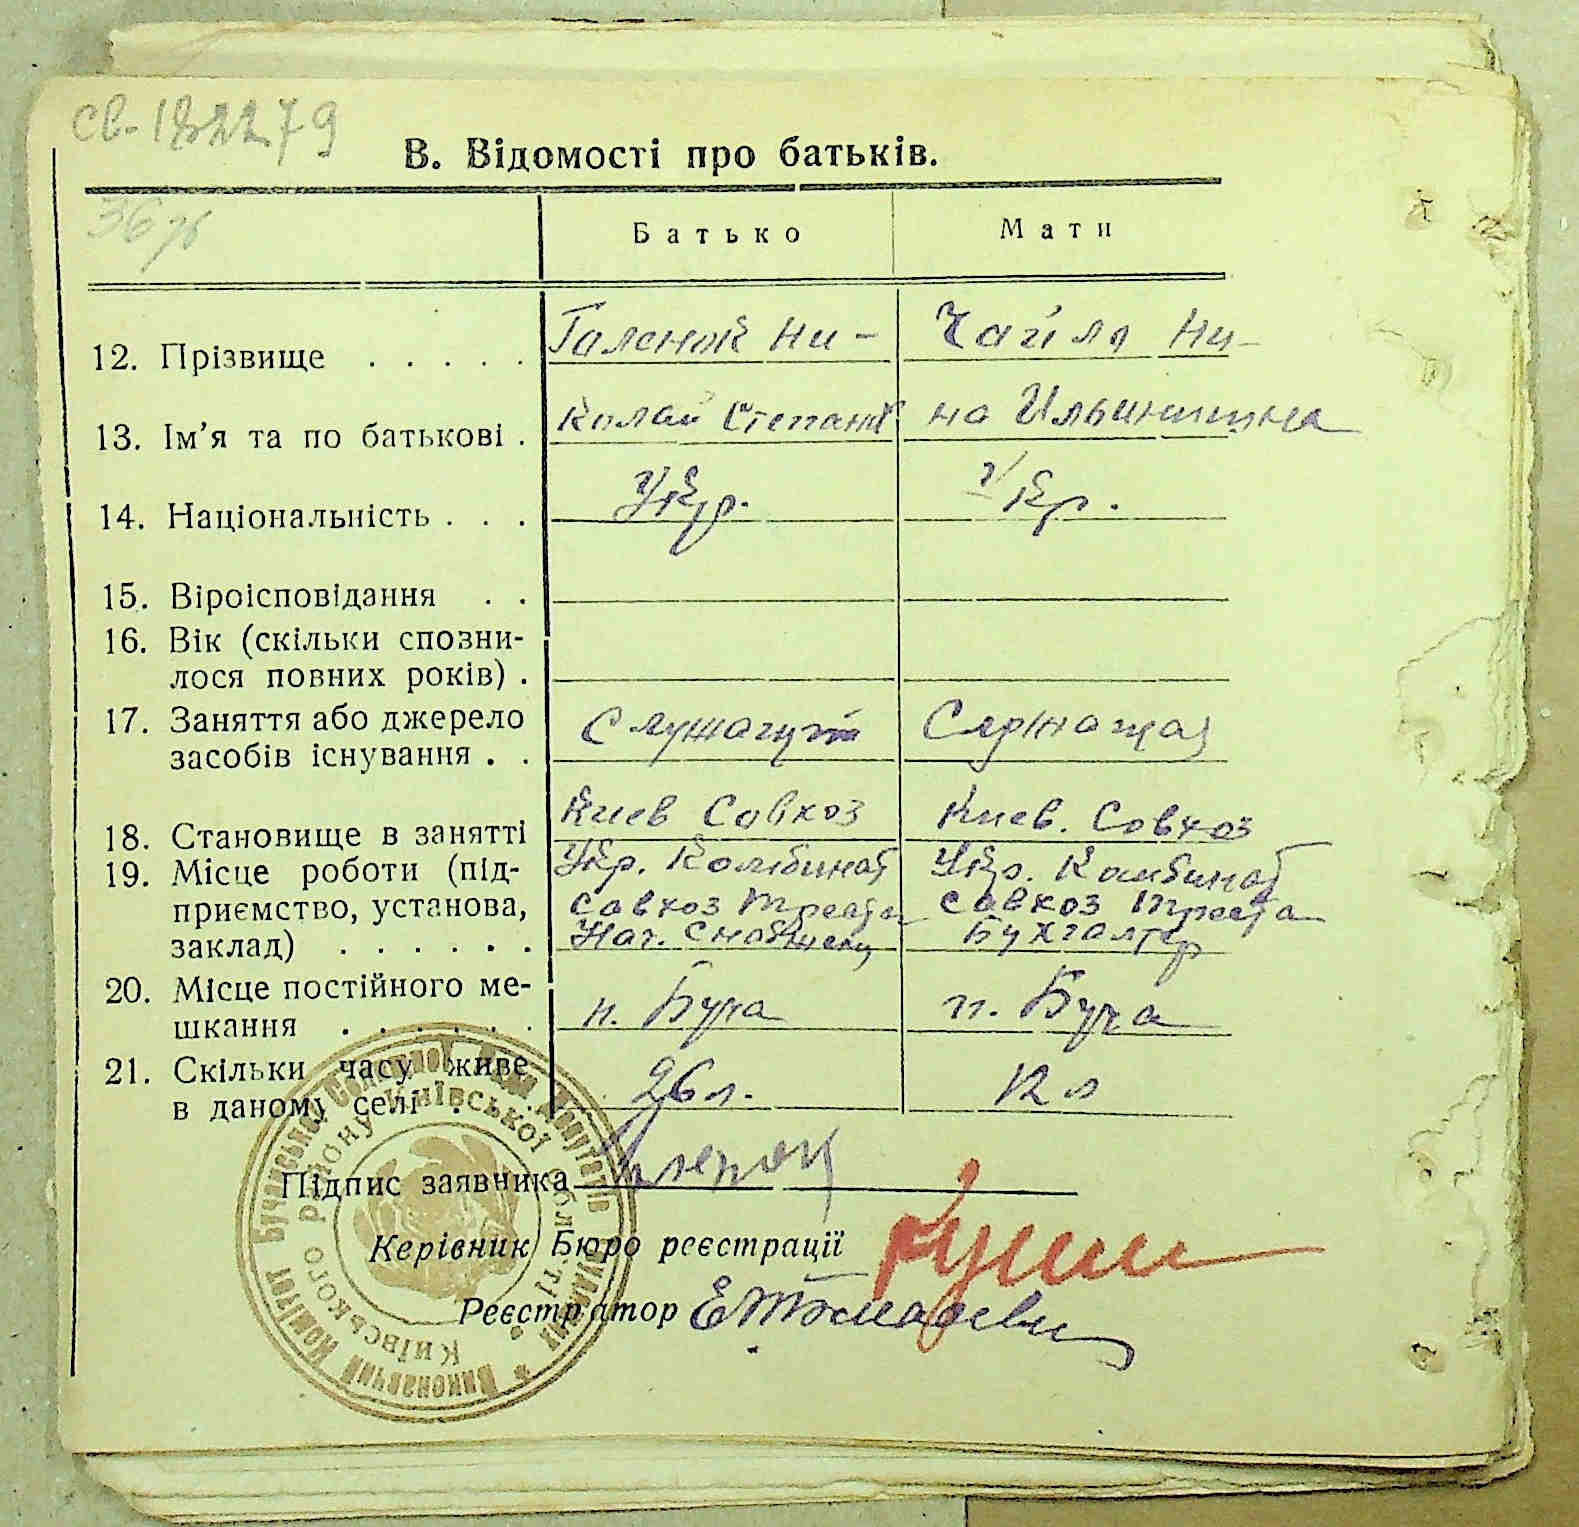 св. 182279
В. Відомості про батьків.
Батько Мати
12. Прізвище . . . . . Галенок Ни- Чагіла Ни-
13. Ім'я та по батькові . колай Степан на Ильинишна
14. Національність . . . Укр. Укр.
15. Віроісповідання . .
16. Вік (скільки спозни-
лося повних років) .
17. Заняття або джерело
засобів існування . . Служащий Служащая
18. Становище в занятті Киев Совхоз Киев. Совхоз
19. Місце роботи (під- Укр. Комбинат Укр. Комбинат
приємство, установа, совхоз треста совхоз треста
заклад) . . . . . . Нач. снабжен Бухгалтер
20. Місце постійного ме-
шкання . . . . . . п. Буча п. Буча
21. Скільки часу живе
в даному селі . . 26 л. 12 л
Підпис заявника
Керівник Бюро реєстрації
Реєстратор
Виконавчий Комітет Бучанської Селищної Ради Депутатів Трудящих
Київського району Київської області